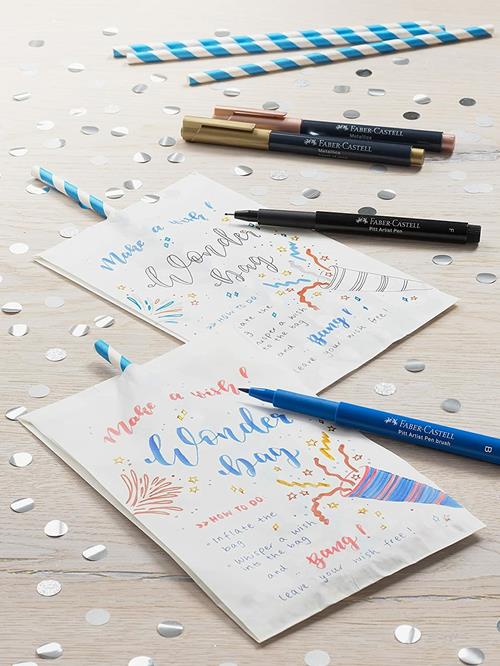 FABER-CASTELL
Metallics
FABER-CASTELL
Metallics
FABER-CASTELL
Pitt Artist Pen
F
Make a wish!
Wonder
Bag
>> HOW TO DO
ate the
isper a wish
to the bag
and Bang!
leave your wish free!
FABER-CASTELL
Pitt Artist Pen brush
B
Make a wish!
Wonder
Bag
>> HOW TO DO
- Inflate the
bag
- Whisper a wish
into the bag
and Bang!
leave your wish free!